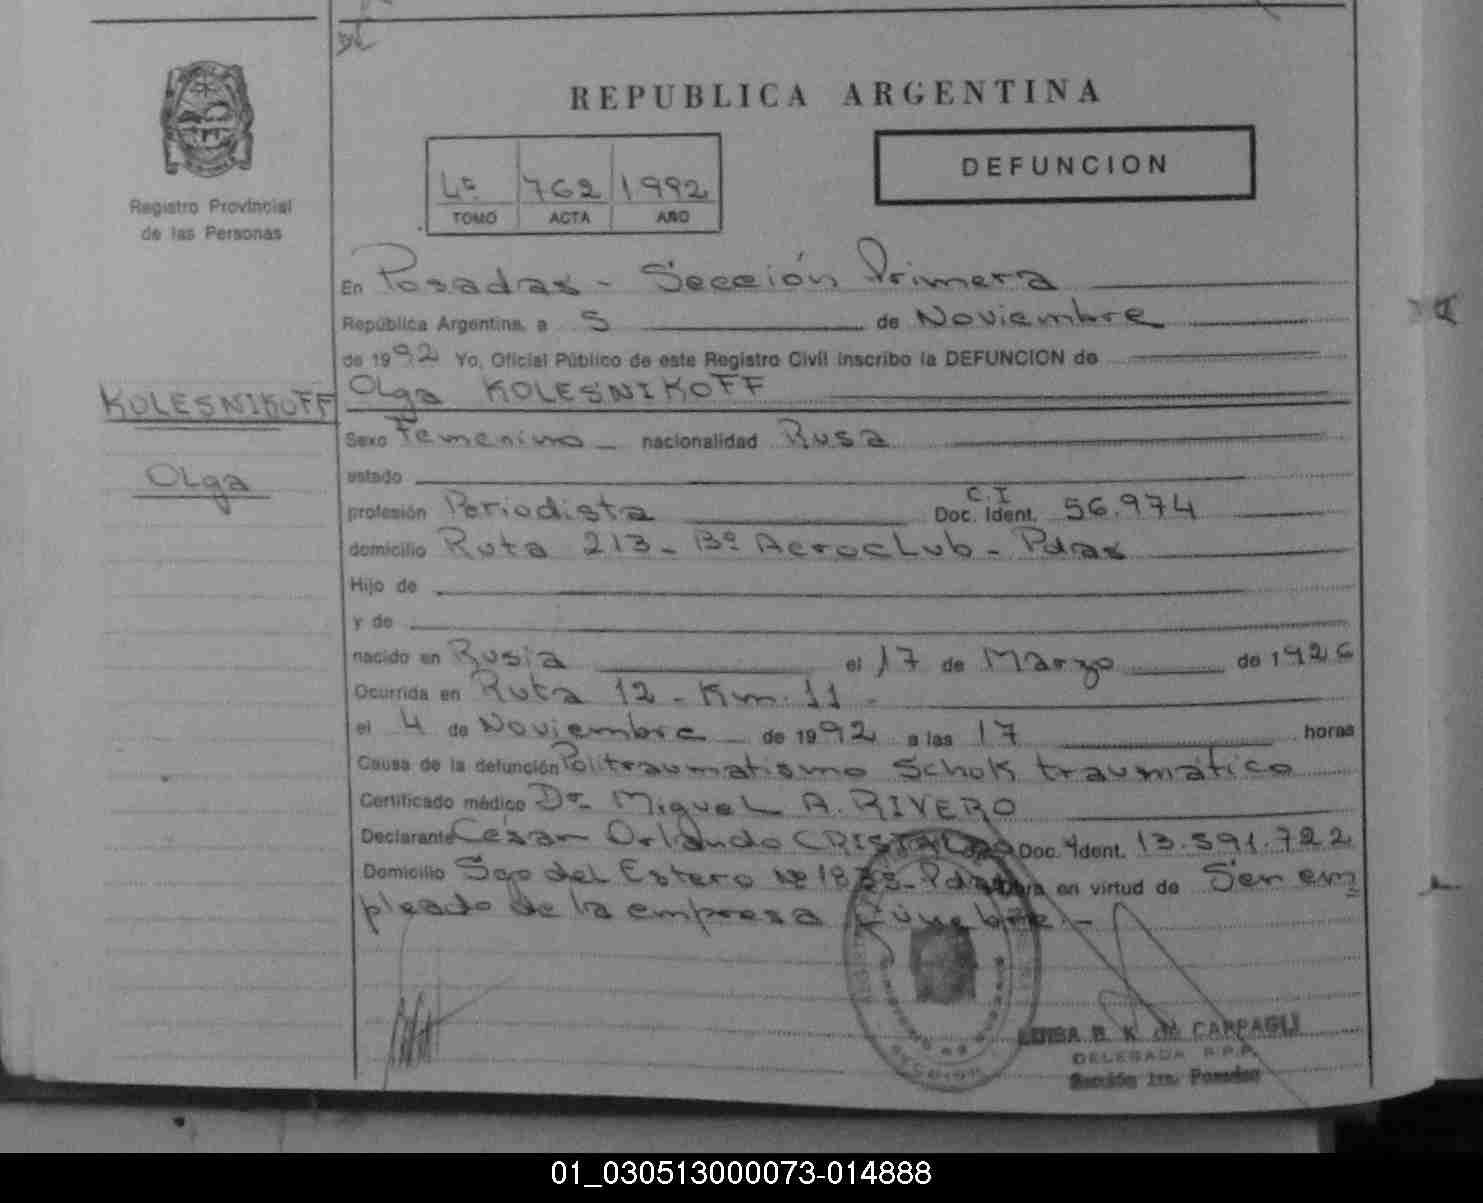 REPUBLICA ARGENTINA
DEFUNCION
Registro Provincial
de las Personas
4º 762 1992
TOMO ACTA AÑO
En Posadas - Sección Primera
República Argentina, a 5 de Noviembre
de 1992 Yo, Oficial Público de este Registro Civil inscribo la DEFUNCION de
Olga KOLESNIKOFF
KOLESNIKOFF
Olga
Sexo Femenino - nacionalidad Rusa
estado
profesión Periodista C.I Doc. Ident. 56.974
domicilio Ruta 213 - Bº Aeroclub - Pdas
Hijo de
y de
nacido en Rusia el 17 de Marzo de 1926
Ocurrida en Ruta 12 - Km. 11 -
el 4 de Noviembre de 1992 a las 17 horas
Causa de la defunción Politraumatismo Schok traumático
Certificado médico Dr. Miguel A. RIVERO
Declarante César Orlando Doc. Ident. 13.591.722
Domicilio Sgo del Estero Nº Pdas Obra en virtud de Ser em
pleado de la empresa fúnebre -
B. K. de CARPAGLI
DELEGADA R.P.P.
Sección 1ra. Posadas
01_030513000073-014888